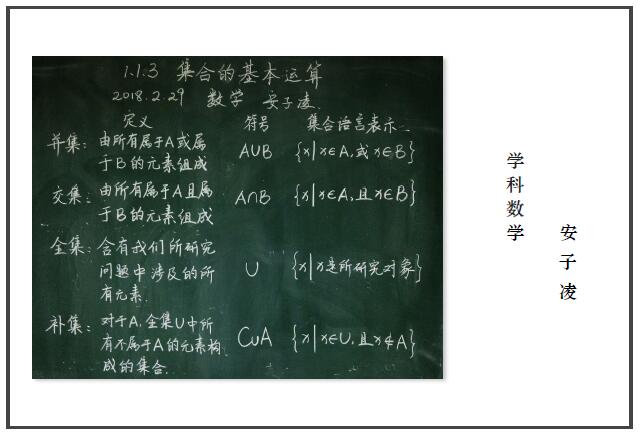 1.1.3 集合的基本运算
2018.2.29 数学 安子凌
定义 符号 集合语言表示
并集: 由所有属于A或属
于B的元素组成 A∪B {x|x∈A,或x∈B}
交集: 由所有属于A且属
于B的元素组成 A∩B {x|x∈A,且x∈B}
全集: 含有我们所研究
问题中涉及的所 U {x|x是所研究对象}
有元素.
补集: 对于A,全集U中所
有不属于A的元素构 CuA {x|x∈U,且x∉A}
成的集合.
学科数学
安子凌